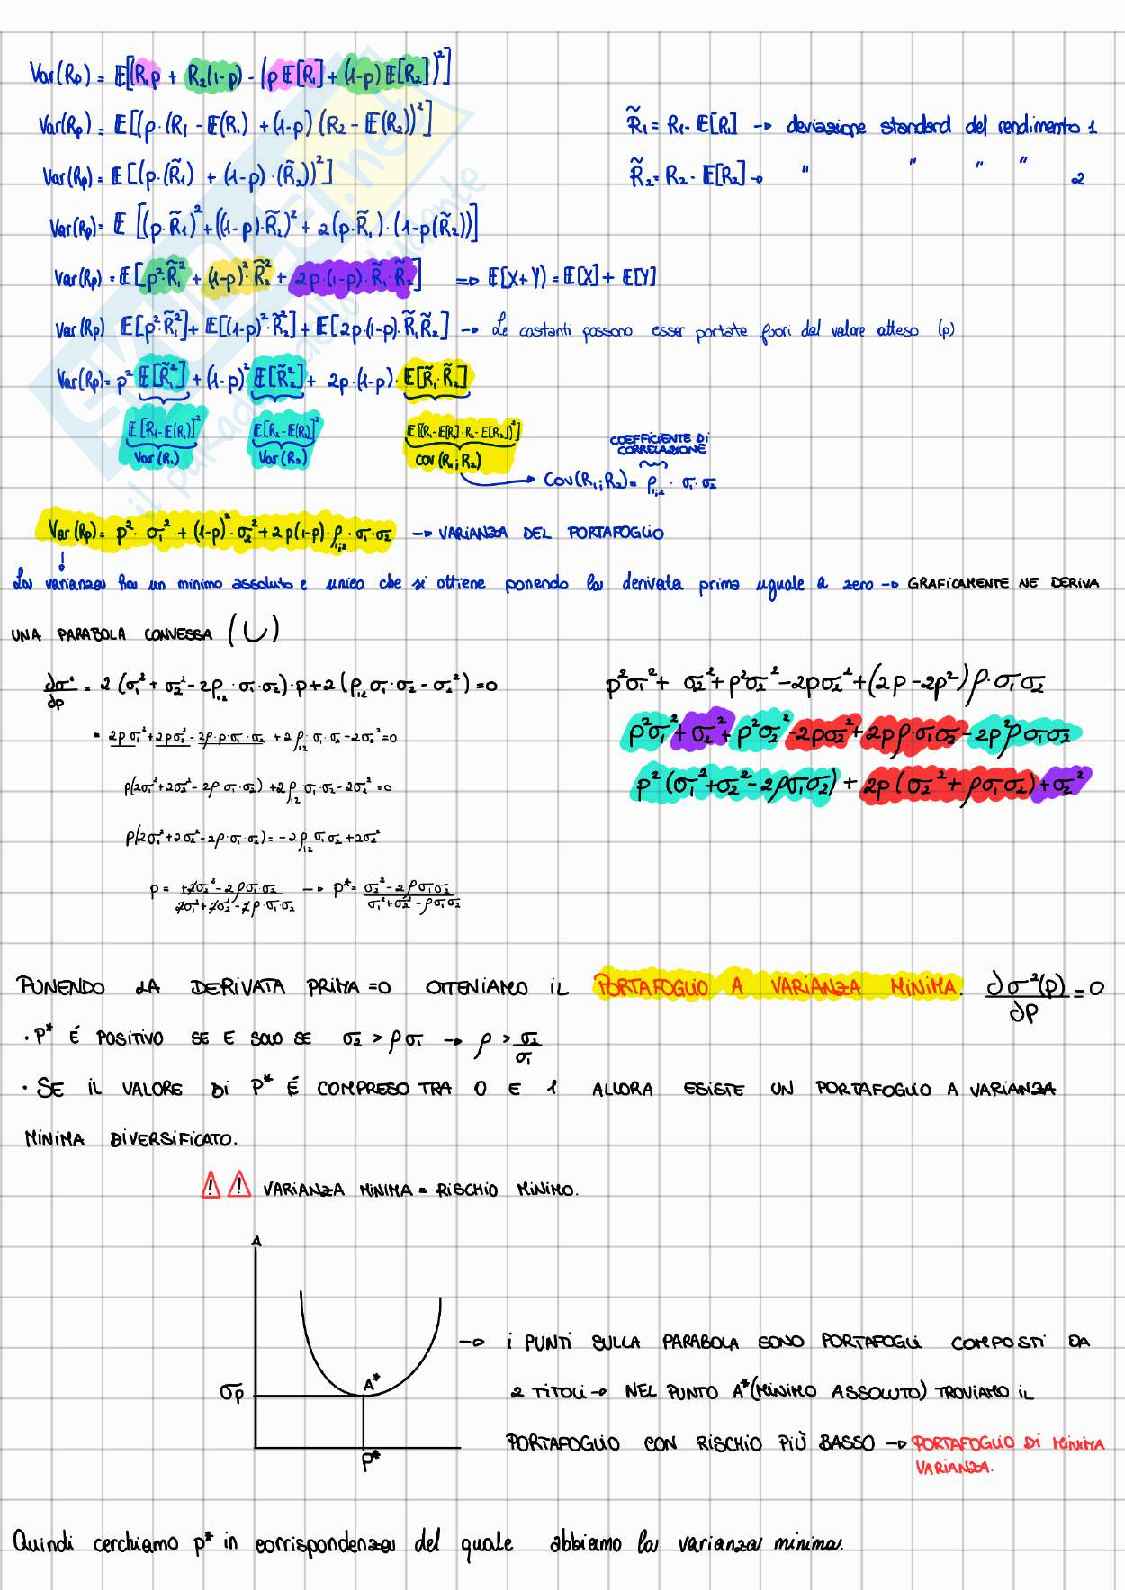 Var(Rp) = E[(R₁p + R₂(1-p) - (p E[R₁] + (1-p) E[R₂])²]
Var(Rp) = E[(p·(R₁ - E(R₁) + (1-p) (R₂ - E(R₂))²]
R̃₁ = R₁ - E[R₁] → deviazione standard del rendimento 1
Var(Rp) = E[(p·(R̃₁) + (1-p)·(R̃₂))²]
R̃₂ = R₂ - E[R₂] → " " " " 2
Var(Rp) = E[(p·R̃₁)² + ((1-p)·R̃₂)² + 2(p·R̃₁)·(1-p(R̃₂))]
Var(Rp) = E[p²·R̃₁² + (1-p)²·R̃₂² + 2p·(1-p)·R̃₁·R̃₂] => E[X+Y) = E[X] + E[Y]
Var(Rp) E[p²·R̃₁²] + E[(1-p)²·R̃₂²] + E[2p·(1-p)·R̃₁R̃₂] → Le costanti possono esser portate fuori dal valore atteso (p)
Var(Rp) = p² E[R̃₁²] + (1-p)² E[R̃₂²] + 2p·(1-p)· E[R̃₁·R̃₂]
E[R₁-E(R₁)]² E[R₂-E(R₂)]² E[(R₁-E[R₁]·R₂-E[R₂])²]
Var(R₁) Var(R₂) COV(R₁;R₂)
COEFFICIENTE DI
CORRELAZIONE
COV(R₁;R₂) = ρ₁,₂ · σ₁·σ₂
Var(Rp) = p²·σ₁² + (1-p)²·σ₂² + 2p(1-p)·ρ₁,₂·σ₁·σ₂ → VARIANZA DEL PORTAFOGLIO
La varianza ha un minimo assoluto e unico che si ottiene ponendo la derivata prima uguale a zero → GRAFICAMENTE NE DERIVA
UNA PARABOLA CONVESSA (∪)
∂σ²/∂p = 2(σ₁² + σ₂² - 2ρ₁,₂·σ₁·σ₂)·p + 2(ρ₁,₂ σ₁·σ₂ - σ₂²) = 0
p²σ₁² + σ₂² + p²σ₂² - 2pσ₂² + (2p - 2p²)ρ·σ₁σ₂
= 2pσ₁² + 2pσ₂² - 2ρ·p·σ₁·σ₂ + 2ρ₁₂·σ₁·σ₂ - 2σ₂² = 0
p²σ₁² + σ₂² + p²σ₂² - 2pσ₂² + 2pρ·σ₁σ₂ - 2p²ρσ₁σ₂
p(2σ₁² + 2σ₂² - 2ρ·σ₁·σ₂) + 2ρ₁₂ σ₁·σ₂ - 2σ₂² = 0
p²(σ₁² + σ₂² - 2ρσ₁σ₂) + 2p(σ₂² + ρσ₁σ₂) + σ₂²
p(2σ₁² + 2σ₂² - 2ρ·σ₁·σ₂) = -2ρ₁₂ σ₁σ₂ + 2σ₂²
p = +2σ₂² - 2ρσ₁·σ₂ / 2σ₁² + 2σ₂² - 2ρ·σ₁σ₂ → p* = σ₂² - 2ρσ₁σ₂ / σ₁² + σ₂² - ρσ₁σ₂
PONENDO LA DERIVATA PRIMA =0 OTTENIAMO IL PORTAFOGLIO A VARIANZA MINIMA. ∂σ²(p)/∂p = 0
· P* É POSITIVO SE E SOLO SE σ₂ > ρσ₁ → ρ > σ₂/σ₁
· SE IL VALORE DI P* É COMPRESO TRA 0 E 1 ALLORA ESISTE UN PORTAFOGLIO A VARIANZA
MINIMA DIVERSIFICATO.
⚠ ⚠ VARIANZA MINIMA = RISCHIO MINIMO.
→ I PUNTI SULLA PARABOLA SONO PORTAFOGLI COMPOSTI DA
σp A* 2 TITOLI → NEL PUNTO A* (MINIMO ASSOLUTO) TROVIAMO IL
P* PORTAFOGLIO CON RISCHIO PIÙ BASSO → PORTAFOGLIO DI MINIMA
VARIANZA.
Quindi cerchiamo p* in corrispondenza del quale abbiamo la varianza minima.